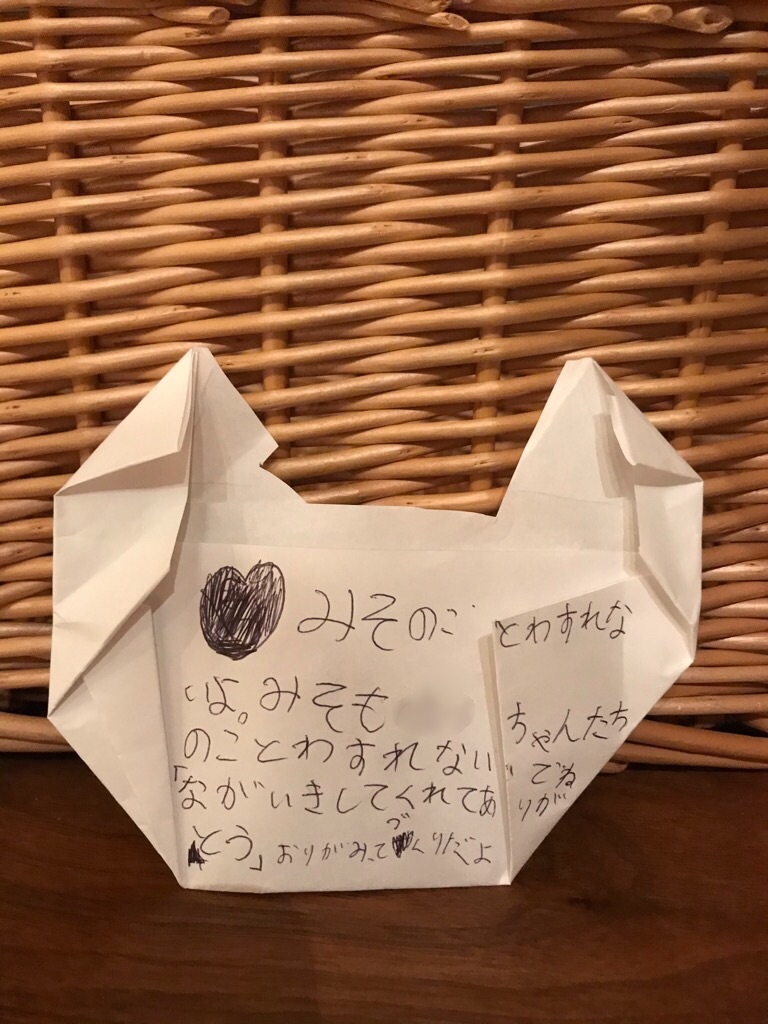 みそのことわすれな
いよ。みそも ちゃんたち
のことわすれないでね
「ながいきしてくれてありが
とう」おりがみてづくりだよ